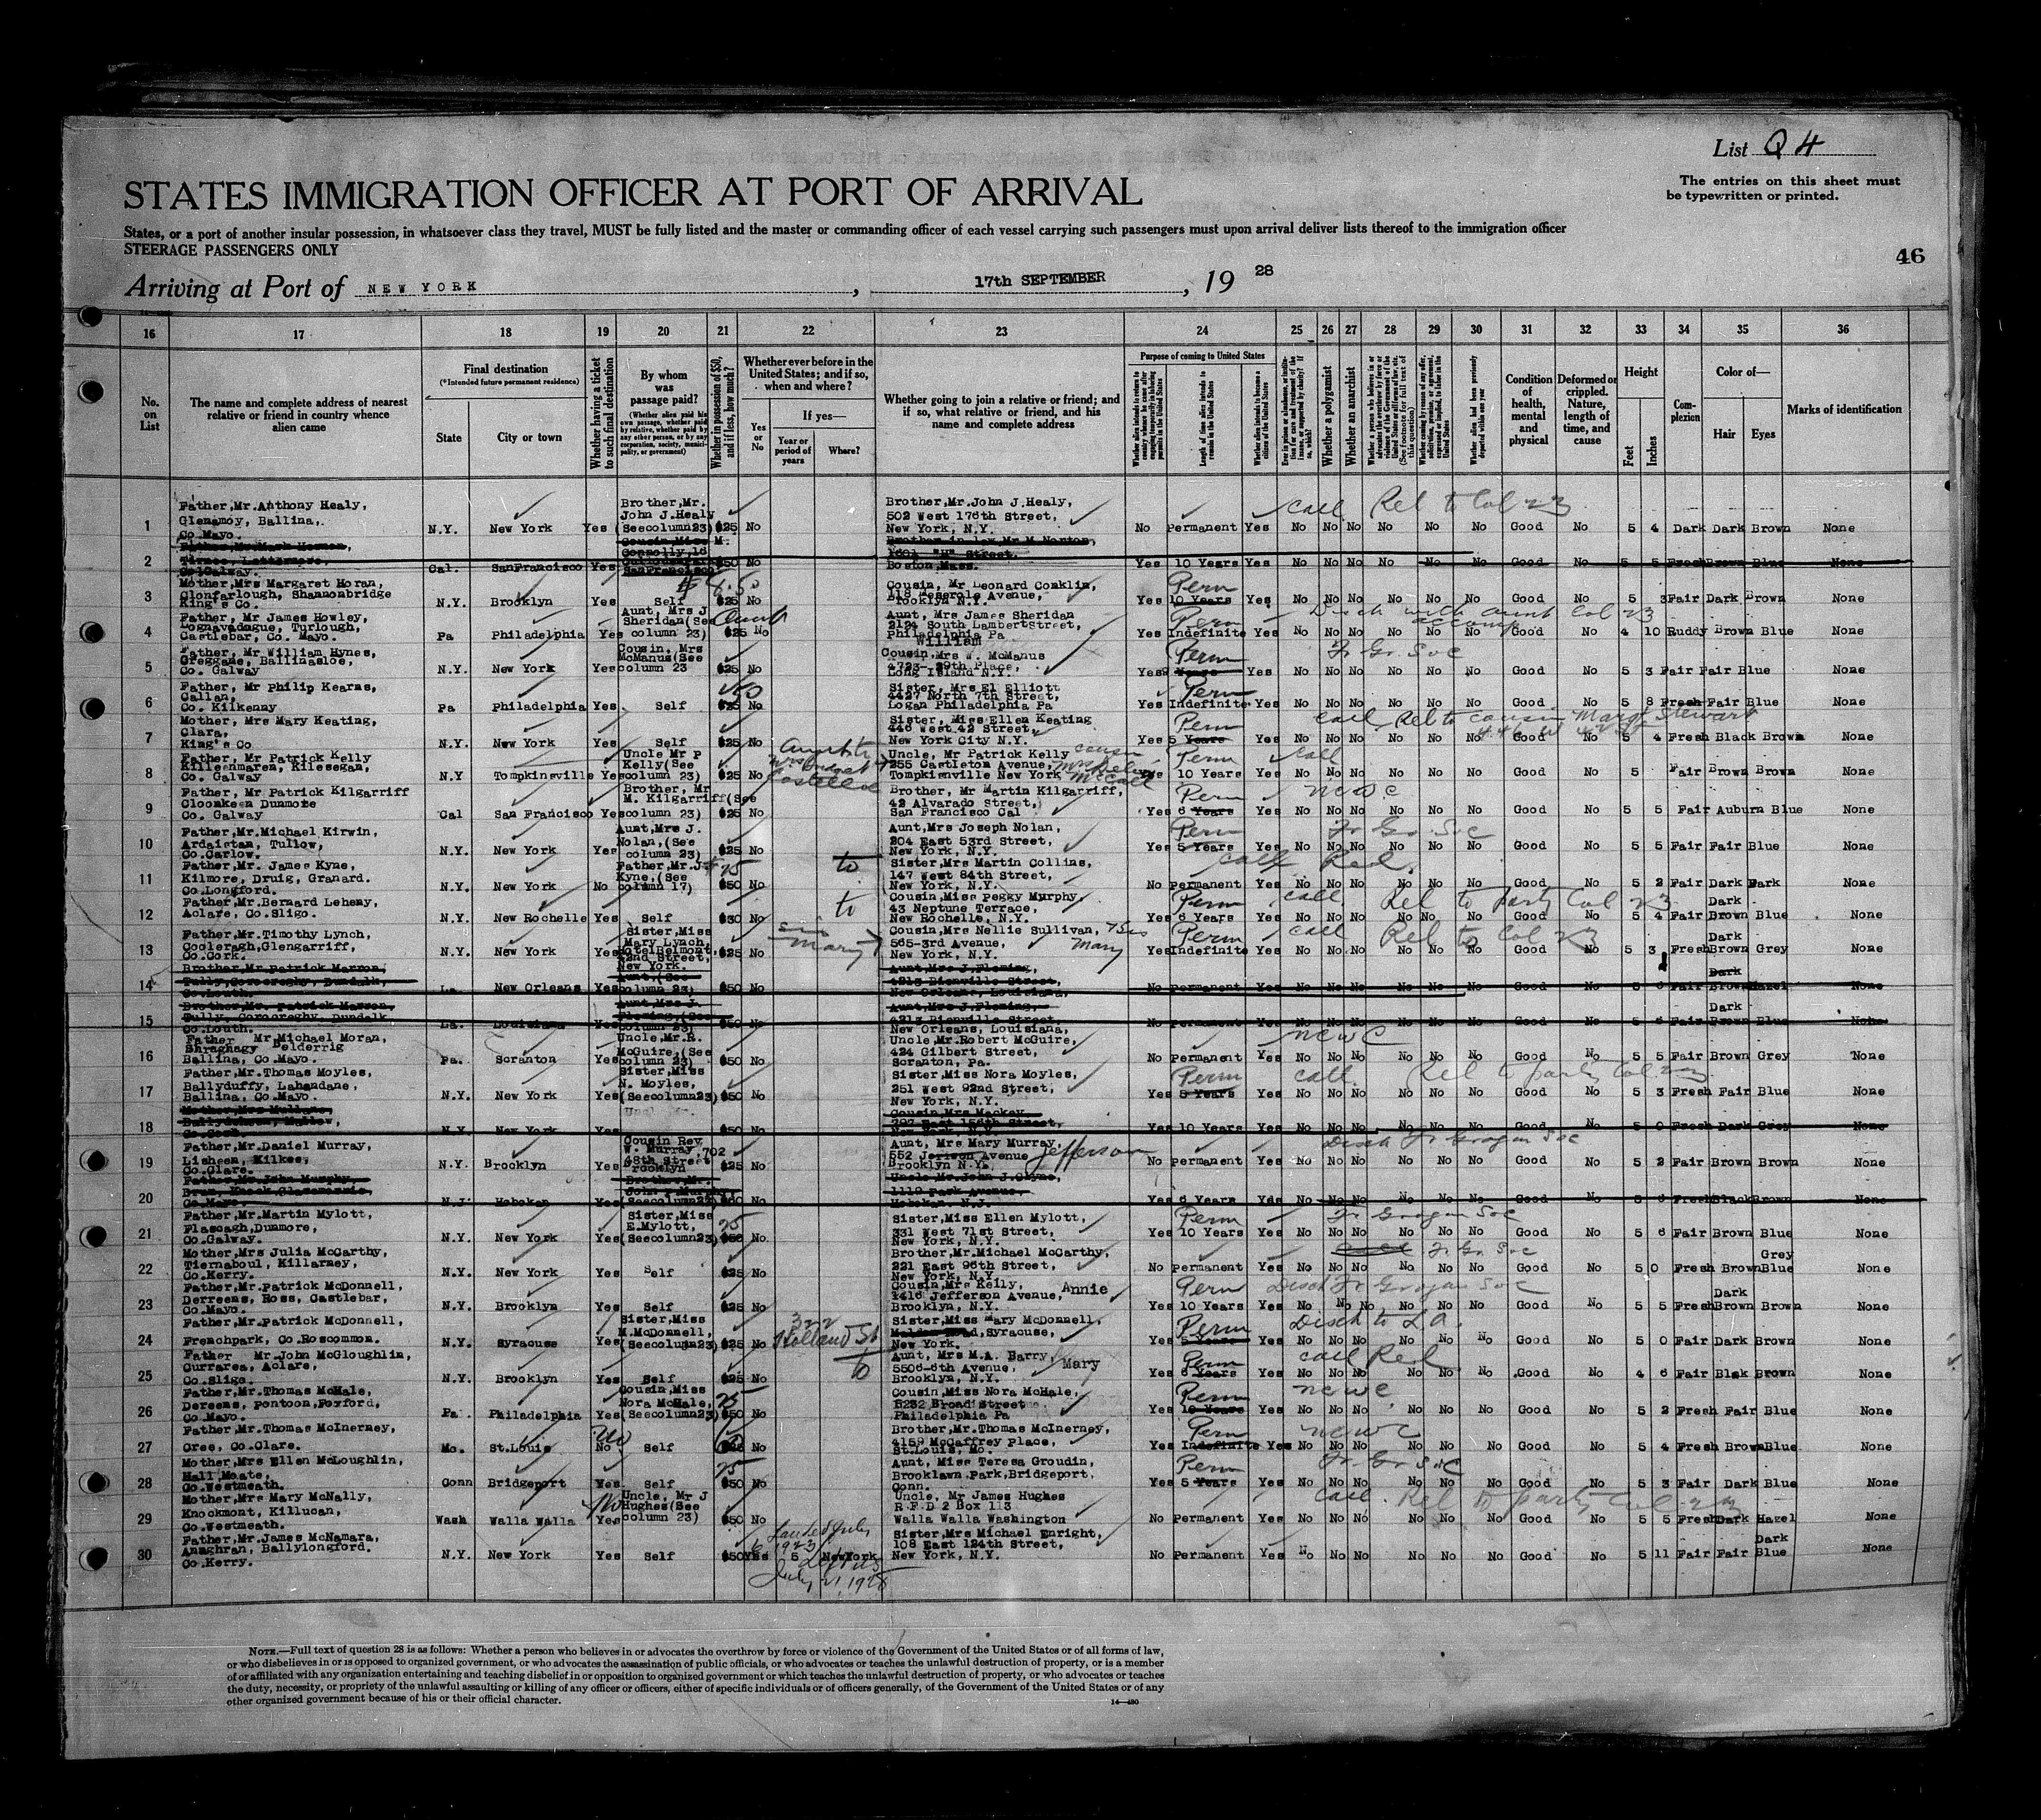 List Q 4
The entries on this sheet must
be typewritten or printed.
STATES IMMIGRATION OFFICER AT PORT OF ARRIVAL
States, or a port of another insular possession, in whatsoever class they travel, MUST be fully listed and the master or commanding officer of each vessel carrying such passengers must upon arrival deliver lists thereof to the immigration officer
STEERAGE PASSENGERS ONLY
46
Arriving at Port of NEW YORK, 17th SEPTEMBER, 19 28
16 17 18 19 20 21 22 23 24 25 26 27 28 29 30 31 32 33 34 35 36
No. on List
The name and complete address of nearest relative or friend in country whence alien came
Final destination
(*Intended future permanent residence)
State
City or town
Whether having a ticket to such final destination
By whom was passage paid?
(Whether alien paid his own passage, whether paid by relative, whether paid by any other person, or by any corporation, society, municipality, or government)
Whether in possession of $50, and if less, how much?
Whether ever before in the United States; and if so, when and where?
Yes or No
If yes—
Year or period of years
Where?
Whether going to join a relative or friend; and if so, what relative or friend, and his name and complete address
Purpose of coming to United States
Length of time alien intends to remain in the United States
Whether alien intends to become a citizen of the United States
Whether a polygamist
Whether an anarchist
Condition of health, mental and physical
Deformed or crippled. Nature, length of time, and cause
Height
Feet
Inches
Complexion
Color of—
Hair
Eyes
Marks of identification
1 Father,Mr.Anthony Healy, Glenamoy, Ballina, Co.Mayo. N.Y. New York Yes Brother,Mr. John J.Healy (Seecolumn23) $25 No Brother,Mr.John J.Healy, 502 West 176th Street, New York, N.Y. No Permanent Yes No No No No No No Good No 5 4 Dark Dark Brown None
call Rel to Col 23
2 Co.Galway. Cal. SanFrancisco Yes $50 No Boston Mass. Yes 10 Years Yes No No No No No No Good No 5 5 Fresh Brown Blue None
3 Mother,Mrs Margaret Horan, Clonfarlough, Shannonbridge King's Co. N.Y. Brooklyn Yes Self $25 No Cousin, Mr Leonard Conklin, 118 Meserole Avenue, Brooklyn N.Y. Perm Yes 10 Years Yes No No No No No No Good No 5 3 Fair Dark Brown None
4 Father, Mr James Howley, Turlough, Castlebar, Co. Mayo. Pa Philadelphia Yes Aunt, Mrs J Sheridan(See column 23) Aunt $25 No Aunt, Mrs James Sheridan 2124 South LambertStreet, Philadelphia Pa Perm Yes Indefinite Yes No No No No No No Good No 4 10 Ruddy Brown Blue None
Disch with aunt Col 23
5 Father, Mr William Hynes, Creggane, Ballinasloe, Co. Galway N.Y. New York Yes Cousin, Mrs McManus(See column 23 $25 No William Cousin,Mrs W. McManus 4723-29th Place, Long Island N.Y. Perm Yes Years Yes No No No No No No Good No 5 3 Fair Fair Blue None
6 Father, Mr Philip Kearns, Callan, Co. Kilkenny Pa Philadelphia Yes. Self $25 No Sister, Mrs El Elliott 4427 North 7th Street, Logan Philadelphia Pa Perm Yes Indefinite Yes No No No No No No Good No 5 8 Fresh Fair Blue None
7 Mother, Mrs Mary Keating, Clara, King's Co N.Y. New York Yes Self $25 No Sister, Miss Ellen Keating 446 West 42 Street, New York City N.Y. Perm Yes 5 Years Yes No No No No No No No 5 4 Fresh Black Brown None
call Rel to cousin Margt Stewart
8 Father, Mr Patrick Kelly Killeenmaren, Kilesegan, Co. Galway N.Y Tompkinsville Yes Uncle Mr P Kelly(See column 23) $25 No Uncle, Mr Patrick Kelly 255 Castleton Avenue, Tompkinsville New York Perm 10 Years Yes No No No No No No Good No 5 Fair Brown Brown None
call
9 Father, Mr Patrick Kilgarriff Cloonkeen Dunmore Co. Galway Cal San Francisco Yes Brother, Mr M. Kilgarriff(See column 23) $25 No Brother, Mr Martin Kilgarriff, 42 Alvarado Street, San Francisco Cal Perm Yes 6 Years Yes No No No No No No Good No 5 5 Fair Auburn Blue None
NCWC
10 Father,Mr.Michael Kirwin, Ardaistan, Tullow, Co.Carlow. N.Y. New York Yes Aunt,Mrs J. Nolan,(See column 23) $25 No Aunt,Mrs Joseph Nolan, 204 East 53rd Street, New York, N.Y. Perm Yes 5 Years Yes No No No No No No Good No 5 5 Fair Fair Blue None
11 Father,Mr. James Kyne, Kilmore, Druig, Granard. Co.Longford. N.Y. New York No Father,Mr.J. Kyne,(See column 17) $50 No Sister,Mrs Martin Collins, 147 West 84th Street, New York, N.Y. No Permanent Yes No No No No No No Good No 5 2 Fair Dark Dark None
call Rel.
12 Father,Mr.Bernard Leheny, Aclare, Co.Sligo. N.Y. New Rochelle Yes Self $30 No Cousin,Miss Peggy Murphy, 43 Neptune Terrace, New Rochelle, N.Y. Perm Yes 6 Years Yes No No No No No No Good No 5 4 Fair Dark Brown Blue None
call Rel to party Col 23
13 Father,Mr.Timothy Lynch, Cooleragh,Glengarriff, Co.Cork. N.Y. New York Yes Sister,Miss Mary Lynch, HotelBelmont, 42nd Street, New York. $25 No Cousin,Mrs Nellie Sullivan, 565-3rd Avenue, New York, N.Y. Perm Yes Indefinite Yes No No No No No No Good No 5 3 Fresh Dark Brown Grey None
call Rel to Col 23
14 Brother,Mr.Patrick Marron, Tully,Corcreghy, Dundalk, Co.Louth. La. New Orleans Yes Aunt,(See column 23) $50 No Aunt,Mrs J.Fleming, 4213 Bienville Street, New Orleans, Louisiana, No Permanent Yes No No No No No No Good No 5 6 Fair Dark Brown Hazel None
15 Brother,Mr. Patrick Marron, Tully, Corcreghy, Dundalk Co.Louth. La. Louisiana Yes Aunt,Mrs J. Fleming,(See column 23) $50 No Aunt,Mrs J.Fleming, 4213 Bienville Street, New Orleans, Louisiana, No Permanent Yes No No No No No No Good No 5 6 Fair Dark Brown Blue None
16 Father Mr.Michael Moran, Shraghagy Belderrig Ballina, Co.Mayo. Pa. Scranton Yes Uncle,Mr.R. McGuire,(See column 23) $50 No Uncle,Mr.Robert McGuire, 424 Gilbert Street, Scranton, Pa. No Permanent Yes No No No No No No Good No 5 5 Fair Brown Grey None
NCWC
17 Father,Mr.Thomas Moyles, Ballyduffy, Lahandane, Ballina, Co.Mayo. N.Y. New York Yes Sister,Miss N. Moyles, (Seecolumn23) $50 No Sister,Miss Nora Moyles, 251 West 92nd Street, New York, N.Y. Perm Yes 5 Years Yes No No No No No No Good No 5 3 Fresh Fair Blue None
call Rel to party Col 23
18 N.Y. New York Yes $50 No Cousin,Mrs Mackey Yes 10 Years Yes No No No No No No Good No 5 0 Fresh Dark Grey None
19 Father,Mr.Daniel Murray, Lisheen, Kilkee, Co.Clare. N.Y. Brooklyn Yes Cousin Rev W. Murray,702 48th Street Brooklyn $25 No Aunt, Mrs Mary Murray, 552 Jerison Avenue Jefferson Brooklyn N.Y. No Permanent Yes No No No No No No Good No 5 2 Fair Brown Brown None
20 Father,Mr.John Murphy, Co.Mayo. N.J. Hoboken Yes Brother,Mr. John J.Murphy, (Seecolumn23) $50 No Uncle,Mr.John J.Glynn, 1119 Park Avenue, Hoboken, N.J. Yes 6 Years Yes No No No No No No Good No 5 6 Fresh Black Brown None
21 Father,Mr.Martin Mylott, Flascagh,Dunmore, Co.Galway. N.Y. New York Yes Sister,Miss E.Mylott, (Seecolumn23) 25 $50 No. Sister,Miss Ellen Mylott, 331 West 71st Street, New York, N.Y. Perm Yes 10 Years Yes No No No No No No Good No 5 6 Fair Brown Blue None
22 Mother,Mrs Julia McCarthy, Tiernaboul, Killarney, Co.Kerry. N.Y. New York Yes Self $25 No Brother,Mr.Michael McCarthy, 221 East 96th Street, New York, N.Y. No Permanent Yes No No No No No No Good No 5 0 Fresh Brown Grey Blue None
23 Father,Mr.Patrick McDonnell, Derreens, Ross, Castlebar, Co.Mayo. N.Y. Brooklyn Yes Self $25 No Cousin,Mrs Keily, Annie 1416 Jefferson Avenue, Brooklyn, N.Y. Perm Yes 10 Years Yes No No No No No No Good No 5 5 Fresh Dark Brown Brown None
24 Father,Mr.Patrick McDonnell, Frenchpark, Co.Roscommon. N.Y. Syracuse Yes Sister,Miss M.McDonnell, (Seecolumn23) $25 No 322 Holland St Sister,Miss Mary McDonnell, Syracuse, New York. Perm Yes 5 Years Yes No No No No No No Good No 5 0 Fair Dark Brown None
25 Father Mr.John McGloughlin, Currarea, Aclare, Co.Sligo. N.Y. Brooklyn Yes Self $25 No to Aunt, Mrs M.A. Barry, Mary 5506-6th Avenue, Brooklyn, N.Y. Perm Yes 6 Years Yes No No No No No No Good No 4 6 Fair Blak Brown None
call Rel
26 Father,Mr.Thomas McHale, Dereens, Pontoon,Foxford, Co.Mayo. Pa. Philadelphia Yes Cousin,Miss Nora McHale, (Seecolumn23) 25 $50 No Cousin,Miss Nora McHale, Broad Street Philadelphia Pa Perm Yes 10 Years Yes No No No No No No Good No 5 2 Fresh Fair Blue None
NCWC
27 Father,Mr.Thomas McInerney, Cree, Co.Clare. Mo. St.Louis No Self $25 No Brother,Mr.Thomas McInerney, 4159 McCaffrey Place, St.Louis, Mo. Perm Yes Indefinite Yes No No No No No No Good No 5 4 Fresh Brown Blue None
NCWC
28 Mother,Mrs Ellen McLoughlin, Hall Moate, Co.Westmeath. Conn Bridgeport Yes Self 25 $50 No Aunt, Miss Teresa Groudin, Brooklawn Park,Bridgeport. Conn. Perm Yes 5 Years Yes No No No No No No Good No 5 3 Fair Dark Blue None
29 Mother,Mrs Mary McNally, Knockmont, Killucan, Co.Westmeath. Wash Walla Walla No Yes Uncle, Mr J Hughes(See column 23) $50 No Uncle, Mr James Hughes R.F.D 2 Box 113 Walla Walla Washington No Permanent Yes No No No No No No Good No 5 5 Fresh Dark Hazel None
call Rel to party Col 23
30 Father,Mr.James McNamara, Anaghran, Ballylongford. Co.Kerry. N.Y. New York Yes Self $50 Yes 5 NewYork July 21, 1928 Sister,Mrs Michael Enright, 108 East 124th Street, New York, N.Y. No Permanent Yes No No No No No No Good No 5 11 Fair Fair Dark Blue None
NOTE.—Full text of question 28 is as follows: Whether a person who believes in or advocates the overthrow by force or violence of the Government of the United States or of all forms of law,
or who disbelieves in or is opposed to organized government, or who advocates the assassination of public officials, or who advocates or teaches the unlawful destruction of property, or is a member
of or affiliated with any organization entertaining and teaching disbelief in or opposition to organized government or which teaches the unlawful destruction of property, or who advocates or teaches
the duty, necessity, or propriety of the unlawful assaulting or killing of any officer or officers, either of specific individuals or of officers generally, of the Government of the United States or of any
other organized government because of his or their official character.
14—480